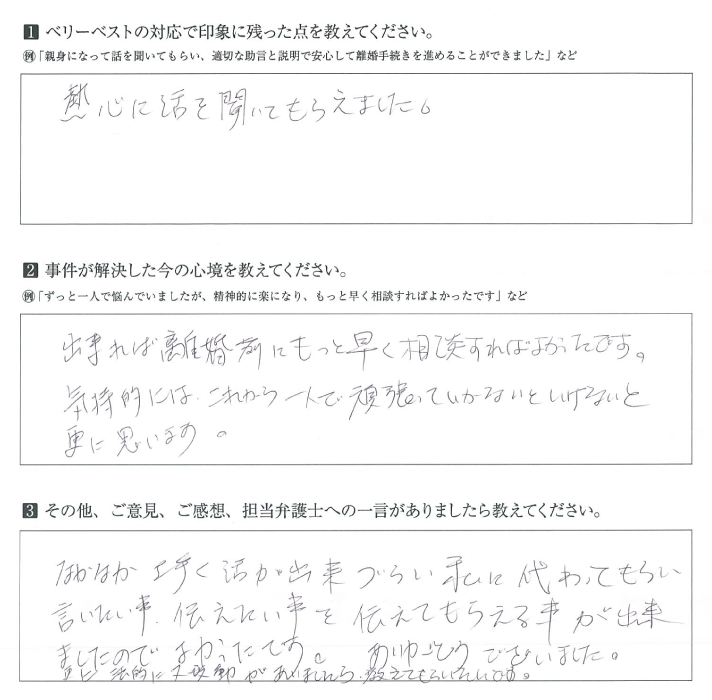 1 ベリーベストの対応で印象に残った点を教えてください。
例「親身になって話を聞いてもらい、適切な助言と説明で安心して離婚手続きを進めることができました」など
熱心に話を聞いてもらえました。
2 事件が解決した今の心境を教えてください。
例「ずっと一人で悩んでいましたが、精神的に楽になり、もっと早く相談すればよかったです」など
出来れば離婚前にもっと早く相談すればよかったです。
気持的には、これから一人で頑張っていかないといけないと
更に思います。
3 その他、ご意見、ご感想、担当弁護士への一言がありましたら教えてください。
なかなか上手く話が出来づらい私に代わってもらい
言いたい事、伝えたい事を伝えてもらえる事が出来
ましたのでよかったです。ありがとうございました。
法的に がありましたら、教えてもらいたいです。